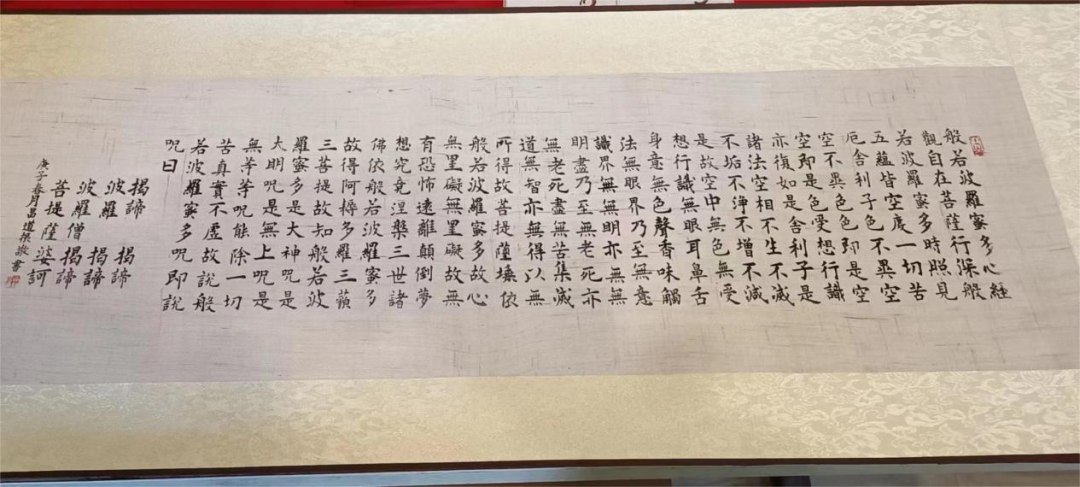 般若波羅蜜多心経
觀自在菩薩行深般
若波羅蜜多時照見
五蘊皆空度一切苦
厄舍利子色不異空
空不異色色即是空
空即是色受想行識
亦復如是舍利子是
諸法空相不生不滅
不垢不淨不增不減
是故空中無色無受
想行識無眼耳鼻舌
身意無色聲香味觸
法無眼界乃至無意
識界無無明亦無無
明盡乃至無老死亦
無老死盡無苦集滅
道無智亦無得以無
所得故菩提薩埵依
般若波羅蜜多故心
無罣礙無罣礙故無
有恐怖遠離顛倒夢
想究竟涅槃三世諸
佛依般若波羅蜜多
故得阿耨多羅三藐
三菩提故知般若波
羅蜜多是大神呪是
大明呪是無上呪是
無等等呪能除一切
苦真實不虛故說般
若波羅蜜多呪即說
呪曰
揭諦 揭諦
波羅 揭諦
波羅僧 揭諦
菩提薩婆訶
庚子春月昌道敬書